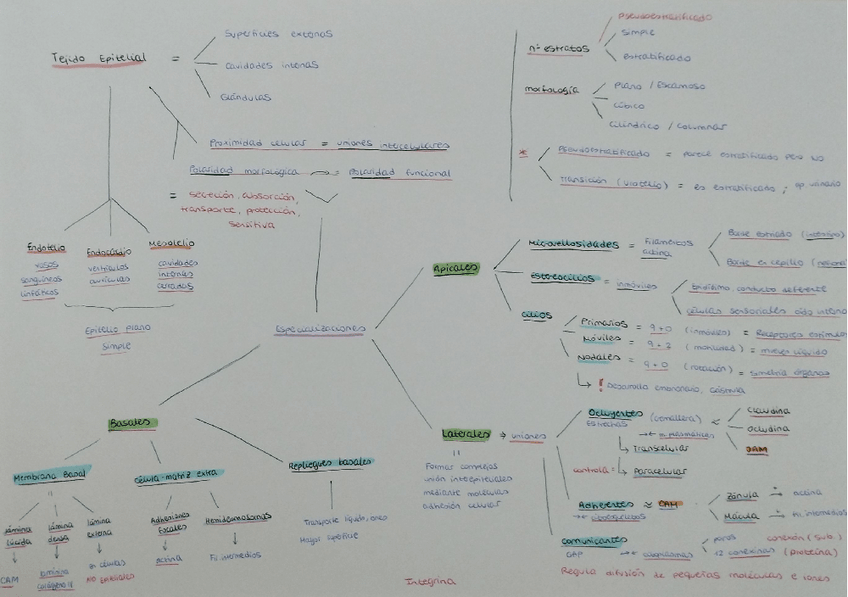 Tejido Epitelial =
Superficies externas
Cavidades internas
Glándulas
Proximidad celular = uniones intercelulares
Polaridad morfológica Polaridad funcional
= secreción, absorción,
transporte, protección,
sensitiva
Endotelio
vasos
sanguíneos
linfáticos
Endocardio
ventrículos
aurículas
Mesotelio
cavidades
internas
cerradas
Epitelio plano
simple
nº estratos
pseudoestratificado
simple
estratificado
morfología
Plano / Escamoso
cúbico
cilíndrico / columnar
*
Pseudoestratificado = parece estratificado pero no
Transición (urotelio) = es estratificado; ap. urinario
Especializaciones
Apicales
Microvellosidades = Filamentos
actina
Borde estriado (intestino)
Borde en cepillo
Estereocilios = inmóviles
Epidídimo, conducto deferente
células sensoriales oído interno
cilios
Primarios = 9+0 (inmóviles) = Receptores
Móviles = 9+2 (motilidad) =
Nodales = 9+0 (rotación) = simetría órganos
! Desarrollo embrionario,
Basales
Membrana Basal
=
lámina
lúcida
CAM
lámina
densa
lámina
externa
NO epiteliales
célula-matriz extra
Adhesiones
Focales
actina
Hemidesmosomas
Fil intermedios
Repliegues basales
Transporte líquido, iones
Mayor superficie
Laterales → uniones
=
Formar complejos
unión interepiteliales
mediante moléculas
adhesión celular
Ocluyentes (cremallera)
Estrechas
m. plasmáticas
Claudina
Ocludina
Transcelular
controla = Paracelular
Adherentes ≈ CAM
Zónula → actina
Mácula → fil intermedios
comunicantes
GAP
poros conexión (sub.)
12 conexinas (proteína)
Regula difusión de pequeñas moléculas e iones
Integrina